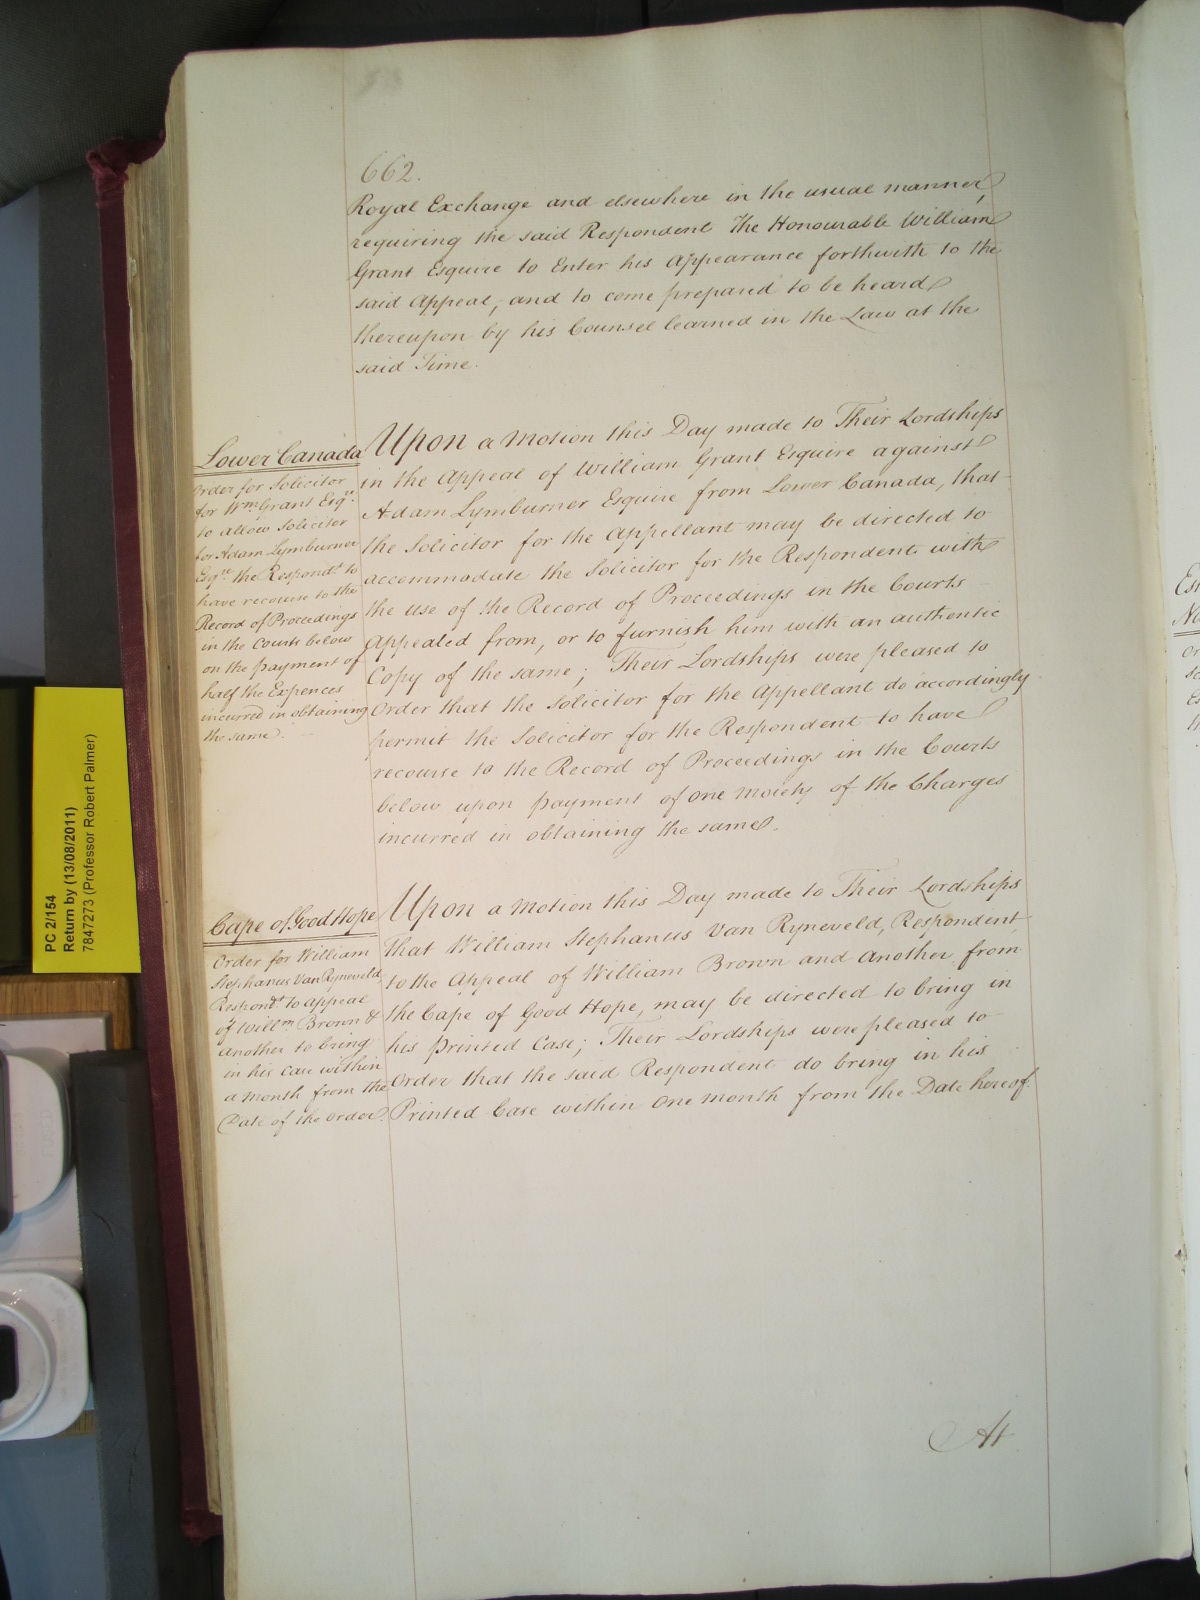 662.
Royal Exchange and elsewhere in the usual manner,
requiring the said Respondent The Honourable William
Grant Esquire to Enter his Appearance forthwith to the
said Appeal, and to come prepared to be heard
thereupon by his Counsel learned in the Law at the
said Time.
Lower Canada
Order for Solicitor
for Wm Grant Esqre
to allow Solicitor
for Adam Lymburner
Esqre the Respondt to
have recourse to the
Record of Proceedings
in the Courts below
on the payment of
half the Expences
incurred in obtaining
the same.
Upon a Motion this Day made to Their Lordships
in the Appeal of William Grant Esquire against
Adam Lymburner Esquire from Lower Canada, that
the Solicitor for the Appellant may be directed to
accommodate the Solicitor for the Respondent with
the use of the Record of Proceedings in the Courts
Appealed from, or to furnish him with an authentic
Copy of the same; Their Lordships were pleased to
Order that the Solicitor for the Appellant do accordingly
permit the Solicitor for the Respondent to have
recourse to the Record of Proceedings in the Courts
below upon payment of one Moiety of the Charges
incurred in obtaining the same.
Cape of Good Hope
Order for William
Stephanus Van Ryneveld
Respondt to Appeal
of Willm Brown &
another to bring
in his Case within
a Month from the
Date of the order.
Upon a Motion this Day made to Their Lordships
that William Stephanus Van Ryneveld, Respondent
to the Appeal of William Brown and Another from
the Cape of Good Hope, may be directed to bring in
his Printed Case; Their Lordships were pleased to
Order that the said Respondent do bring in his
Printed Case within One Month from the Date hereof.
At
PC 2/154
Return by (13/08/2011)
7847273 (Professor Robert Palmer)